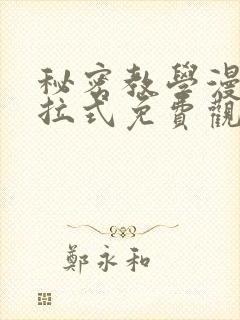 秘密教學漫
拉式免費觀
鄭永和